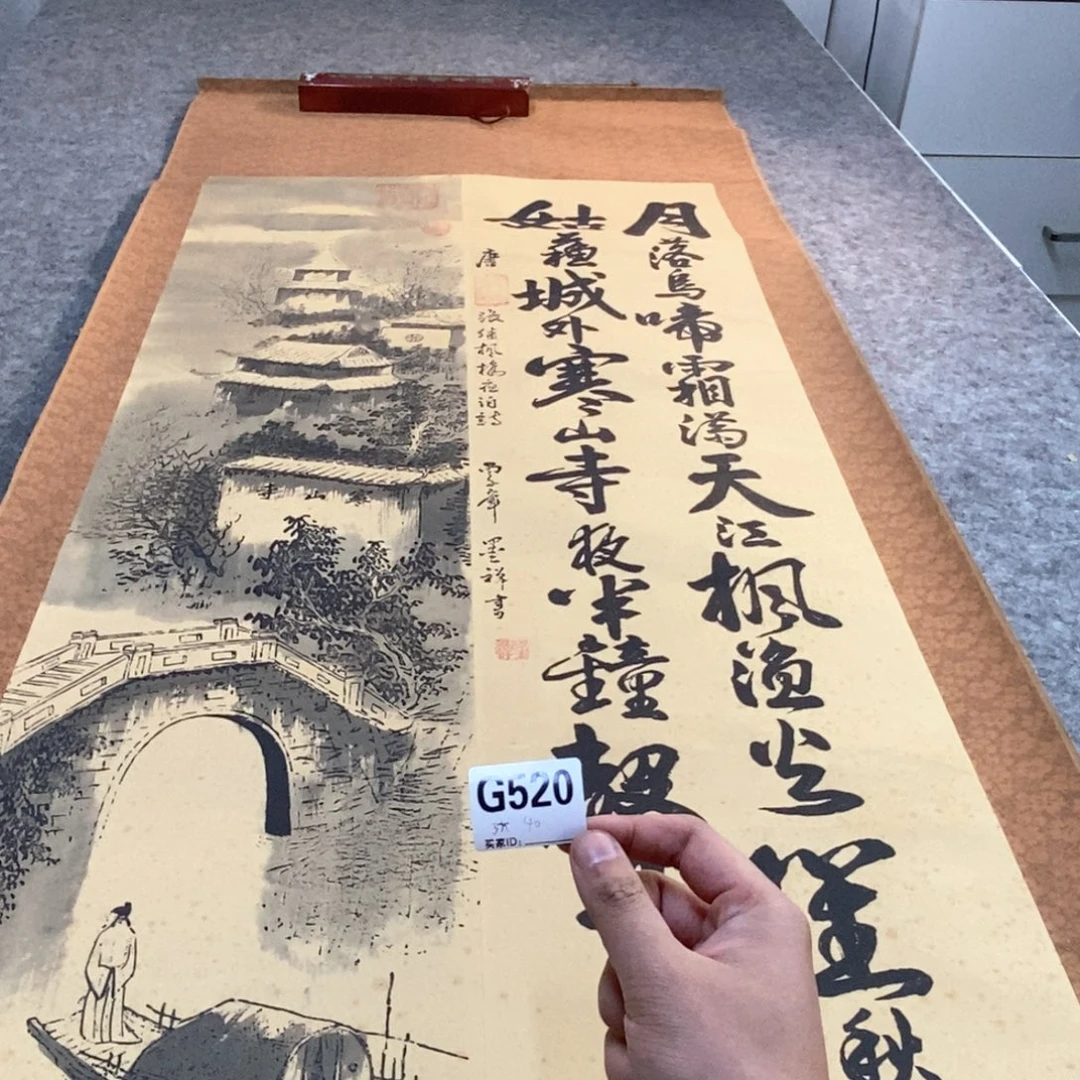 月落烏啼霜滿天江楓漁火對
姑蘇城外寒山寺夜半鐘聲
唐 張繼楓橋夜泊詩 墨祥書
寒山寺
G520
40
买家ID: